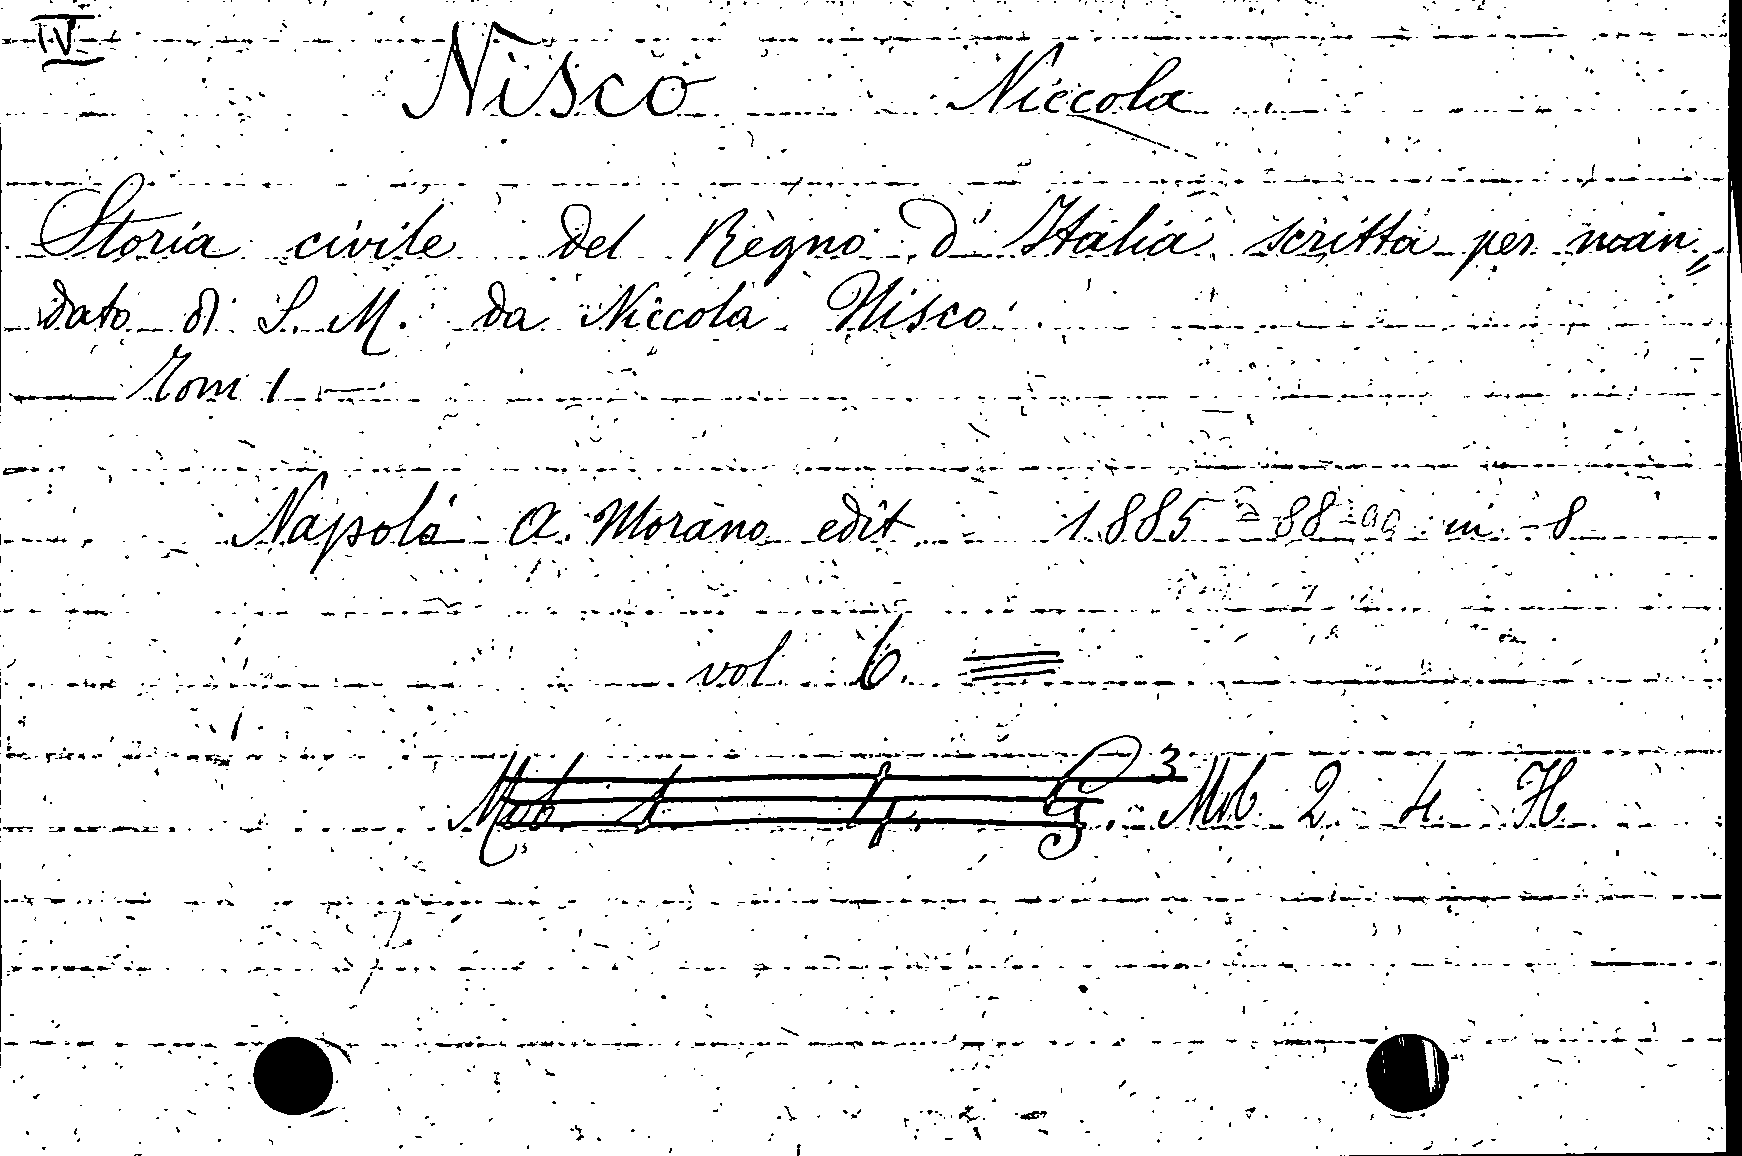 IV
Nisco Niccola
Storia civile del Regno d'Italia scritta per man„
dato di S. M. da Niccola Nisco.
—— Tom 1 ——
Napoli A. Morano edit 1885 = 88 in 8
vol 6.
Mob 2. 4. H.